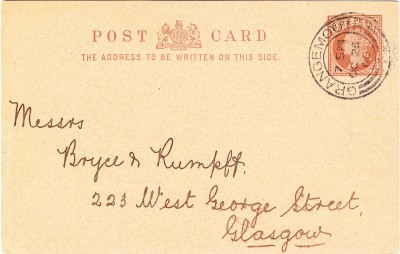 POST CARD
THE ADDRESS TO BE WRITTEN ON THIS SIDE.
GRANGEMOUTH
Messrs
Bryce & Rumpff.
223 West George Street,
Glasgow